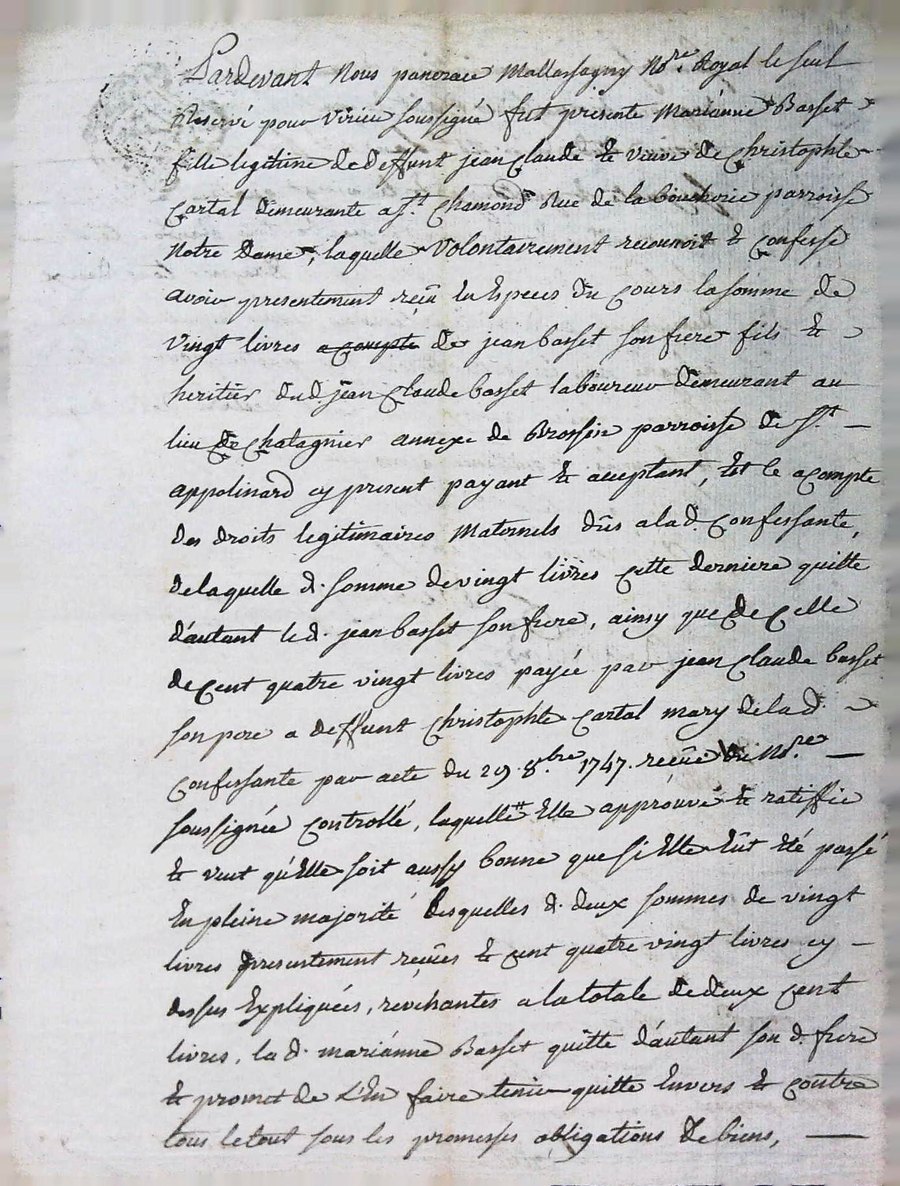 Pardevant Nous pancrace Mallassagny No.re Royal le seul
Reservé pour Virieu soussigné fut presente Marianne Basset
fille legitime de deffunt jean Claude & veuve de Christophle
Cartal demeurante a St. Chamond Rue de la boucherie parroisse
Notre Dame, laquelle volontairement reconnoit & confesse
avoir presentement reçû en Especes du cours la somme de
vingt livres a compte de jean basset son frere fils &
heritier dud. jean Claude basset laboureur demeurant au
lieu de Chatagnier annexe de Brossin parroisse de St.
appolinard cy present payant & aceptant, Est le acompte
des droits legitimaires Maternels dûs a lad. confessante,
de laquelle d. somme de vingt livres cette derniere quitte
d'autant le d. jean basset son frere, ainsy que de celle
de cent quatre vingt livres payée par jean Claude basset
son pere a deffunt Christophle Cartal mary de la d.
confessante par acte du 29. 8.bre 1747. reçûe No.re
soussignée controllé, laquelle Elle approuve & ratiffie
& veut qu'Elle soit aussy bonne que si Elle Eût Eté passé
En pleine majorité desquelles d. deux sommes de vingt
livres presentement reçües & cent quatre vingt livres cy
dessus Expliquées, revenantes a la totale de deux cent
livres, la d. marianne Basset quitte d'autant son d. frere
& promet de L'En faire tenir quitte Envers & contre
tous le tout sous les promesses obligations de biens,